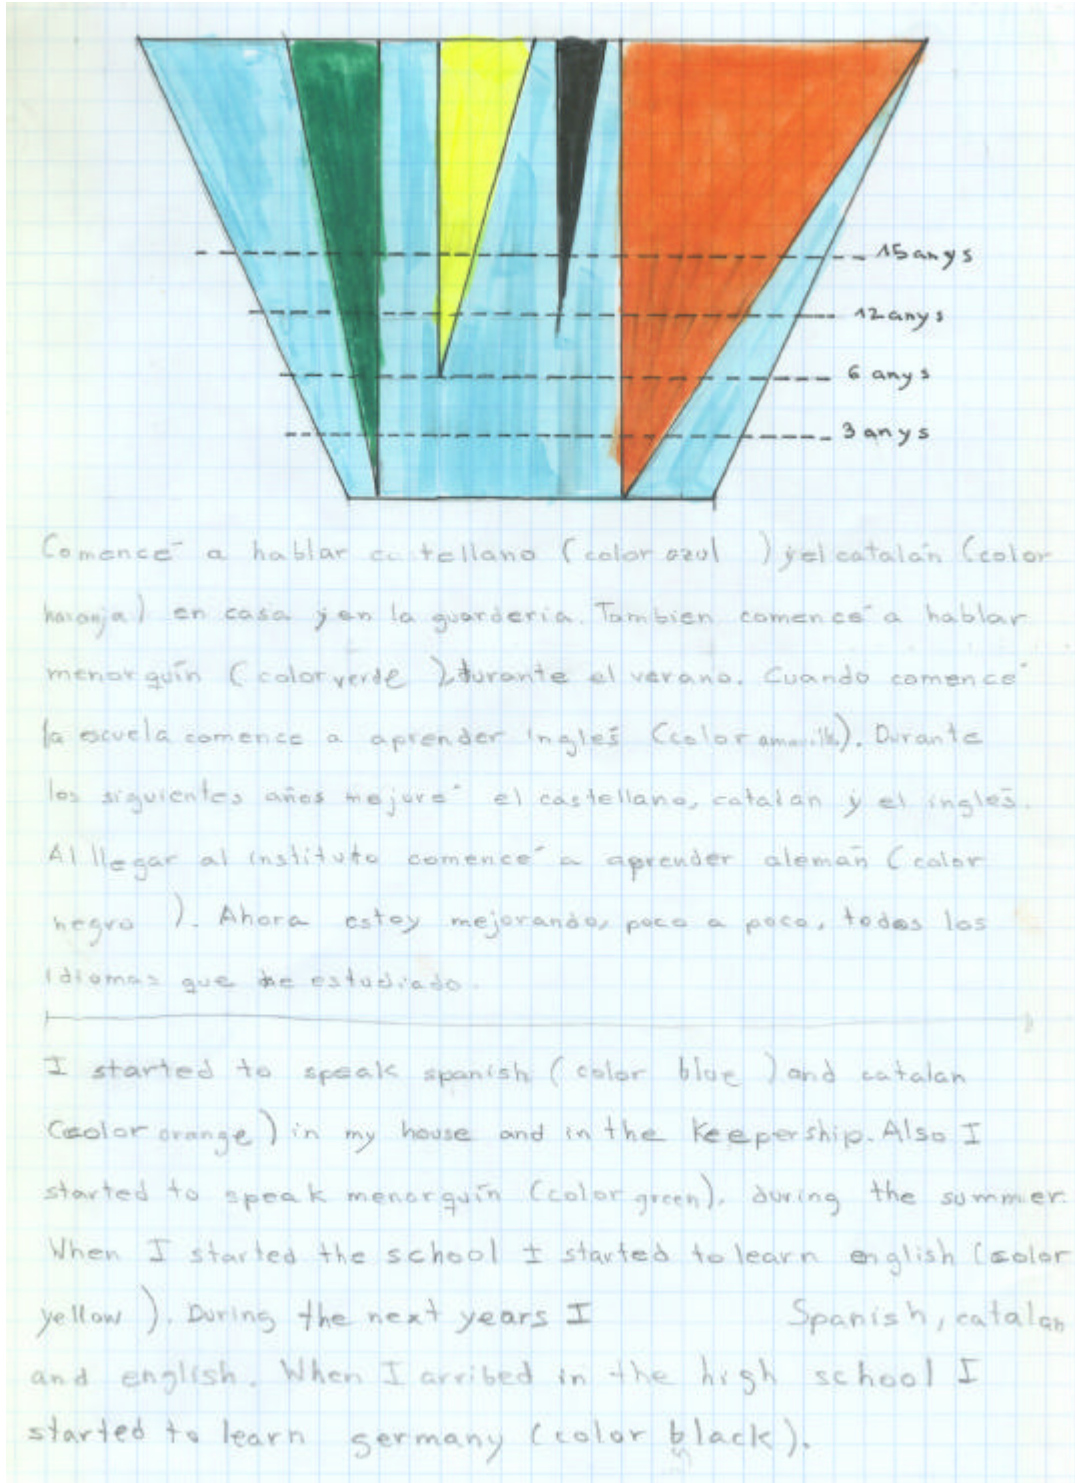 15 anys
12 anys
6 anys
3 anys
Comencé a hablar castellano (color azul ) y el catalán (color
naranja) en casa y en la guardería. Tambien comencé a hablar
menorquín (color verde ), durante el verano. Cuando comencé
la escuela comence a aprender inglés (color amarillo). Durante
los siguientes años mejoré el castellano, catalan y el inglés.
Al llegar al instituto comencé a aprender alemán (color
negro ). Ahora estoy mejorando, poco a poco, todos los
idiomas que he estudiado.
I started to speak spanish (color blue ) and catalan
(color orange) in my house and in the Keepership. Also I
started to speak menorquín (color green). during the summer.
When I started the school I started to learn english (color
yellow ). During the next years I Spanish, catalan
and english. When I arribed in the high school I
started to learn germany (color black).